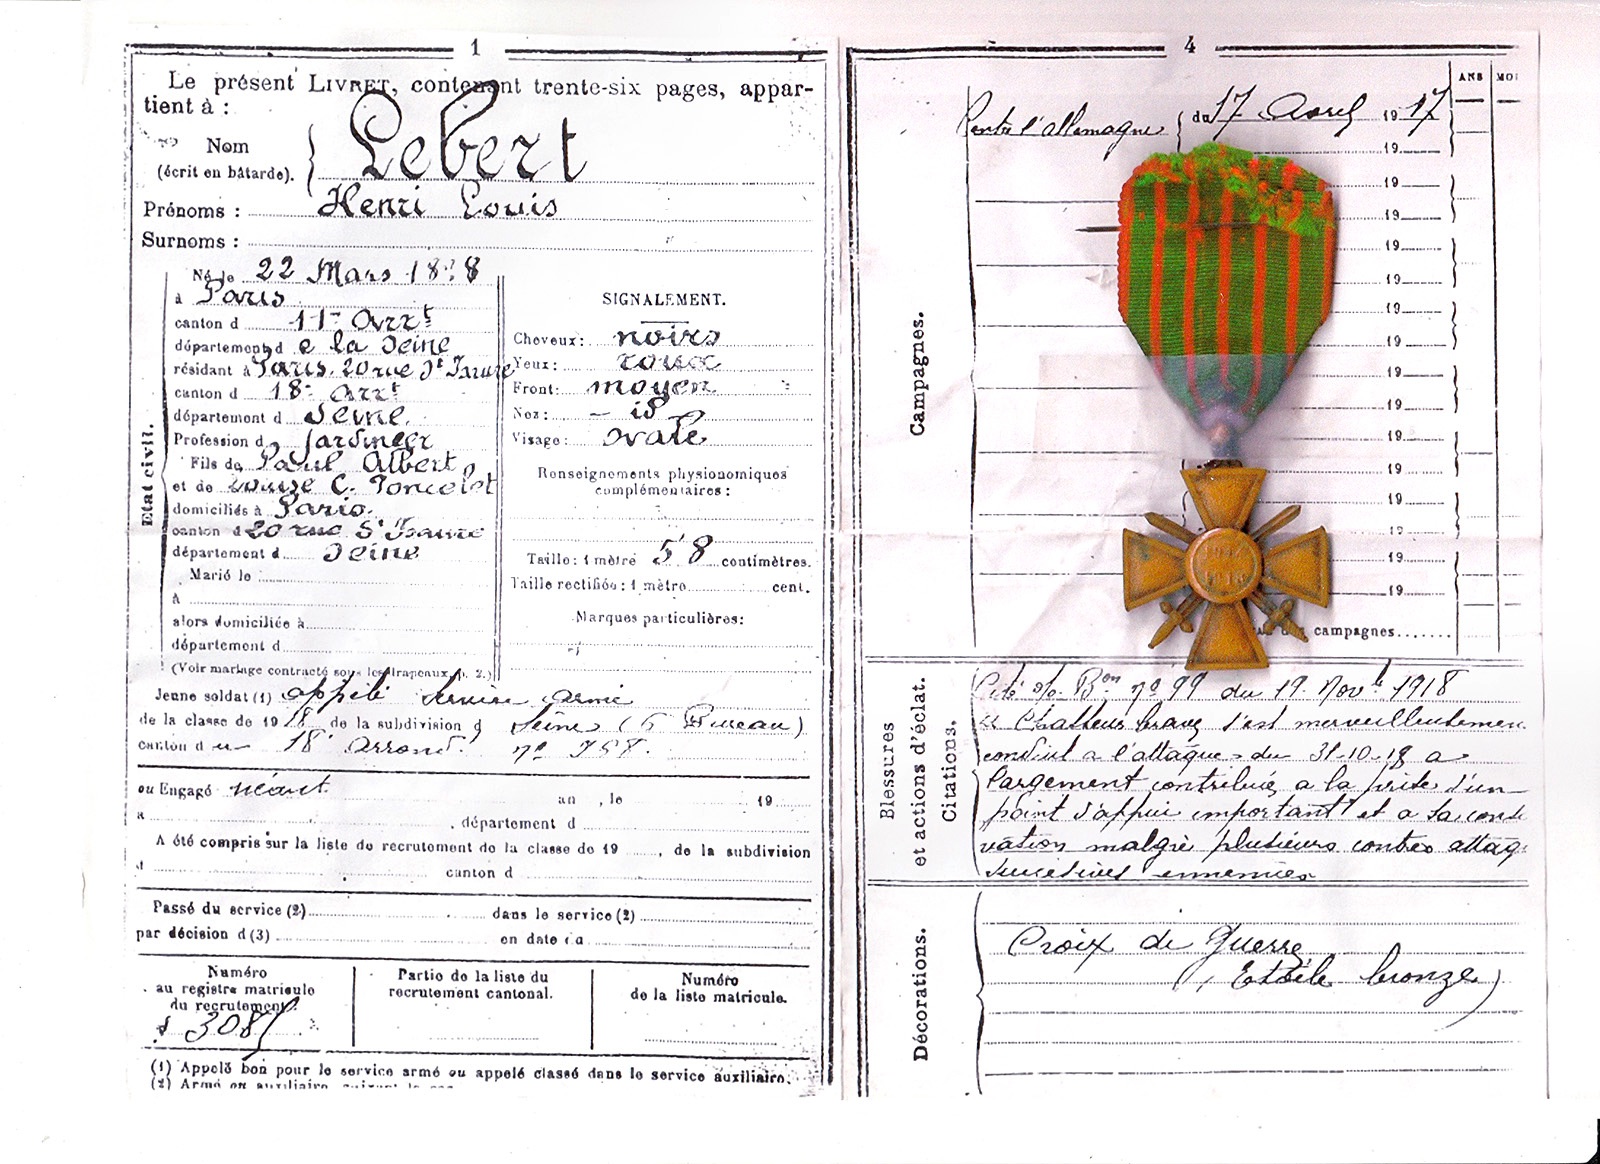 1
Le présent LIVRET, contenant trente-six pages, appar-
tient à :
Nom
(écrit en bâtarde).
Lebert
Prénoms : Henri Louis
Surnoms :
Etat civil.
Né le 22 Mars 18 8
à Paris
canton d 11e Arrt
département d e la Seine
résidant à Paris. 20 rue St
canton d 18e Arrt
département d Seine.
Profession d jardinier
Fils de Paul Albert
et de Louise C. Poncelet
domiciliés à Paris.
canton d 20 rue St
département d Seine
Marié le
à
alors domiciliée à
département d
(Voir mariage contracté sous les drapeaux, p. 2.)
SIGNALEMENT.
Cheveux: noirs
Yeux: roux
Front: moyen
Nez: - id
Visage: ovale
Renseignements physionomiques
complémentaires:
Taille: 1 mètre 58 centimètres.
Taille rectifiée: 1 mètre cent.
Marques particulières:
Jeune soldat (1) appelé service armé
de la classe de 1918 de la subdivision d Seine (6 Bureau)
canton d u 18e arrond. no
ou Engagé néant
an , le 19
à , département d
A été compris sur la liste de recrutement de la classe de 19 , de la subdivision
d canton d
Passé du service (2) dans le service (2)
par décision d (3) en date d
Numéro
au registre matricule
du recrutement.
308
Partie de la liste du
recrutement cantonal.
Numéro
de la liste matricule.
(1) Appelé bon pour le service armé ou appelé classé dans le service auxiliaire.
(2) Armé ou auxiliaire, suivant le cas.
4
ANS MOI
Campagnes.
Contre l'allemagne du 17 Avril 1917
19
19
19
19
19
19
19
19
19
19
19
19
19
19
19
campagnes
Blessures
et actions d'éclat.
Citations.
Cité o/o Bon no 99 du 19 Novb 1918
"Chasseur brave s'est merveilleusemen
conduit a l'attaque du 31-10-18 a
largement contribué a la prise d'un
point d'appui important et a sa conse
vation malgré plusieurs contres attaq
successives ennemies
Décorations.
Croix de Guerre
(Etoile bronze)
1914
1918